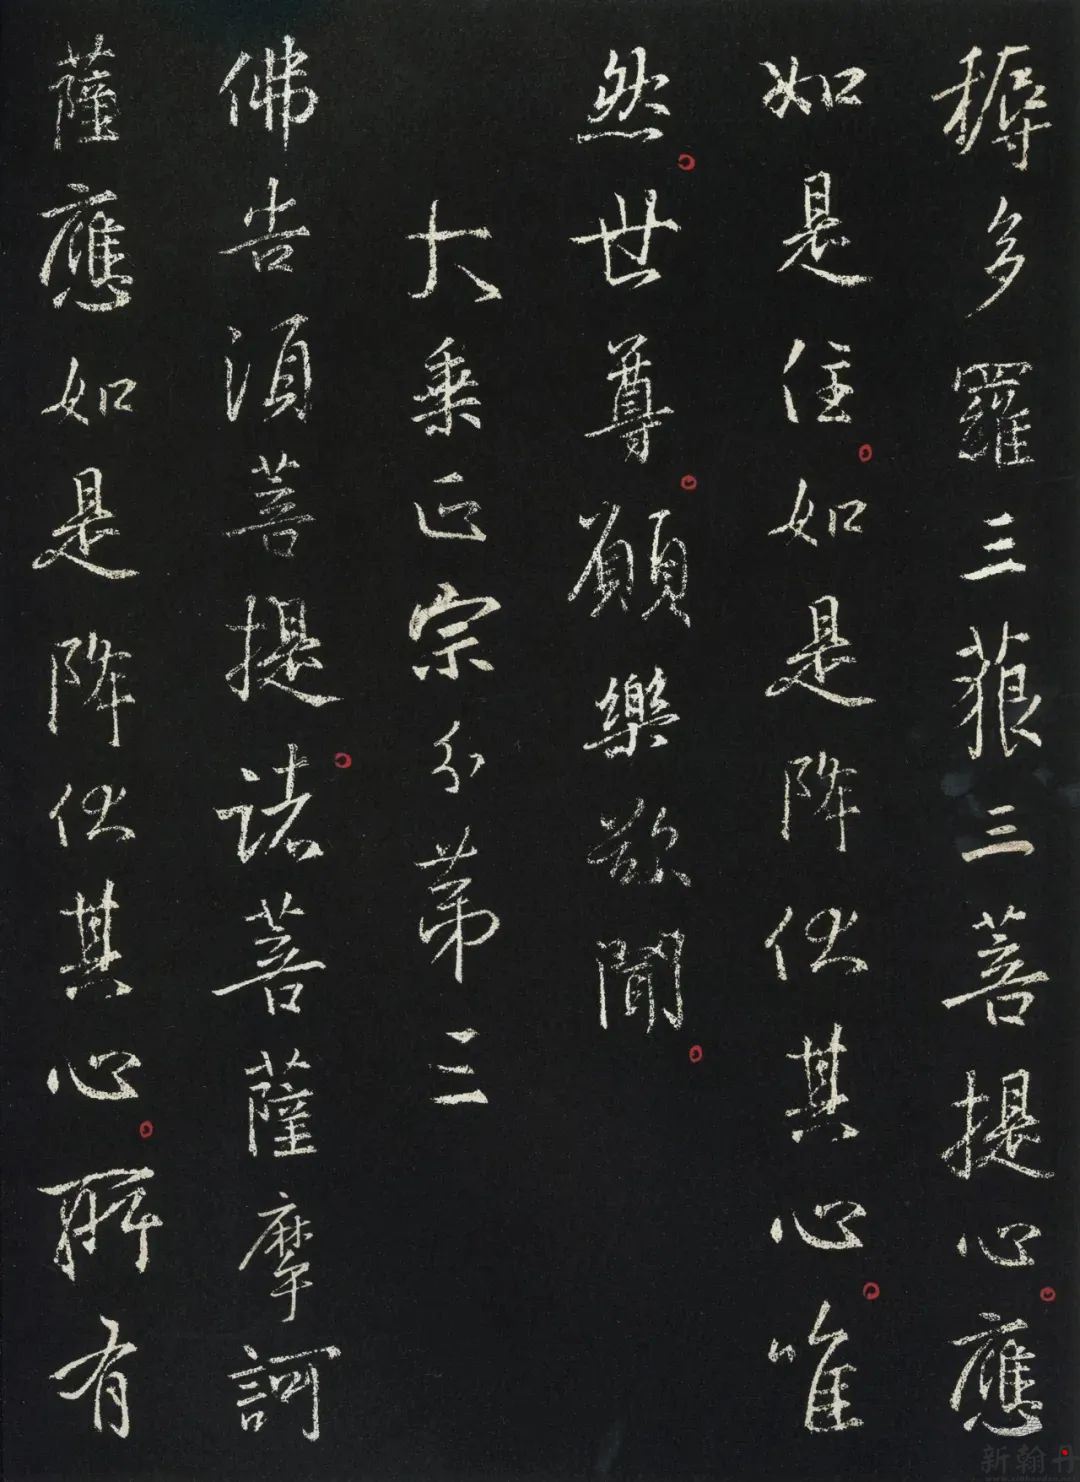 耨多羅三藐三菩提心。應
如是住。如是降伏其心。唯
然。世尊。願樂欲聞。
大乘正宗分第三
佛告須菩提。諸菩薩摩訶
薩應如是降伏其心。所有
新翰丹